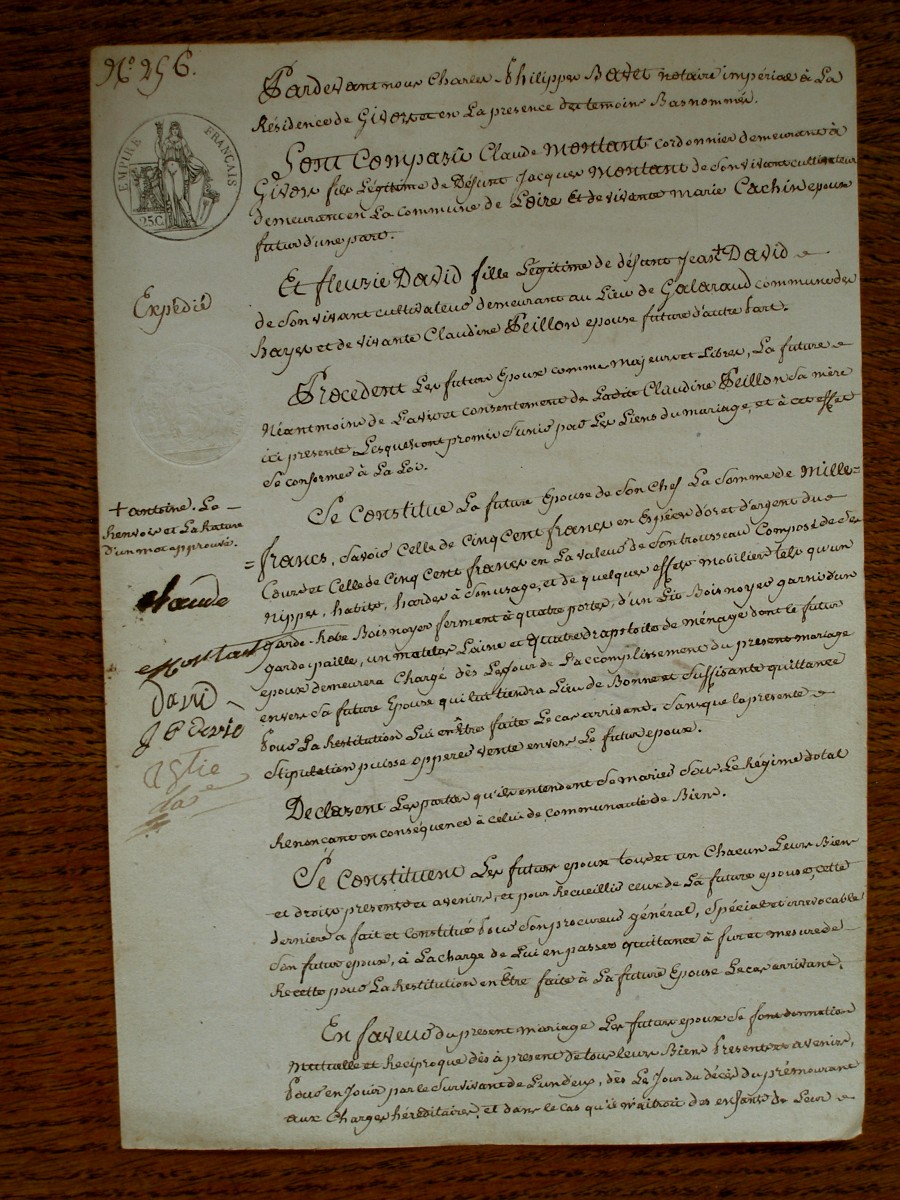 N.º 256.
EMPIRE FRANÇAIS
25C.
Pardevant nous Charles Philippes Bavet notaire impérial à La
Résidence de Givors et en La presence des temoins Basnommés.
Sont Comparû Claude Montant cordonnier demeurant à
Givors fils Légitime de Défunt Jacques Montant de son vivant cultivateur
demeurant en La Commune de Loire Et de vivante Marie Cachin epoux
futur d'une part.
Et fleurie David fille Légitime de défunt Jean + David
de son vivant cultivateur demeurant au Lieu de Galaraud commune des
hayes et de vivante Claudine Peillon epouse future d'autre Part.
Expédié
Procedent Les future Epoux comme majeurs et Libres, La future
Néantmoins de L'avis et consentement de Ladite Claudine Peillon Sa mère
ici presente Lesquels ont promis s'unir par Les Liens du mariage, et à cet effet
Se conformer à La Loi.
Se Constitue La future Epouse de Son Chef La Somme de Mille =
= francs, Savoir Celle de Cinq Cent francs en Espèces d'or et d'argent du
Cours et Celle de Cinq Cent francs en La valeur de Son trousseau Composé de Ses
Nippes, habits, hardes à Son usage, et de quelques effets mobiliers tels qu'un
garde-Robe Bois noyer fermant à quatre portes, d'un Lit Bois noyer garni d'un
garde-paille, un matelas Laine et Quatre draps toile de ménage dont le futur
epoux demeurera Chargé dès Le Jour de L'accomplissement du present mariage
envers Sa future Epouse qui Lui tiendra Lieu de Bonne et Suffisante quittance
Pour La Restitution Lui en Être faite Le cas arrivant. Sans que la presente
Stipulation puisse opperer vente envers Le futur epoux.
+ antoine. Le
Renvois et La Rature
d'un mot approuvés.
Claude
Montant
David
Declarent Les parties qu'ils entendent Se marier Sous Le Régime dotal
Renoncant en conséquence à celui de Communauté de Biens.
Se Constituent Les futurs epoux tous et un Chacun Leurs Biens
et droits presents et avenirs, et pour Recueillir ceux de La future epouse, cette
derniere a fait et Constitué Pour Son procureur général, Spécial et irrevocable
Son futur epoux, à La charge de Lui en passer quittance à fur et mesure de
Recette pour La Restitution en Être faite à La future Epouse Le cas arrivant.
En faveur du present mariage Les futurs epoux Se font donnation
Mutuelle et Réciproque dès à present de tous Leurs Biens Presents et avenirs,
Pour en Jouir par le Survivant de L'un deux, dès Le Jour du décès du prémourant
aux Charges héréditaires, et dans le Cas qu'il n'aîtroit des enfants de Leur